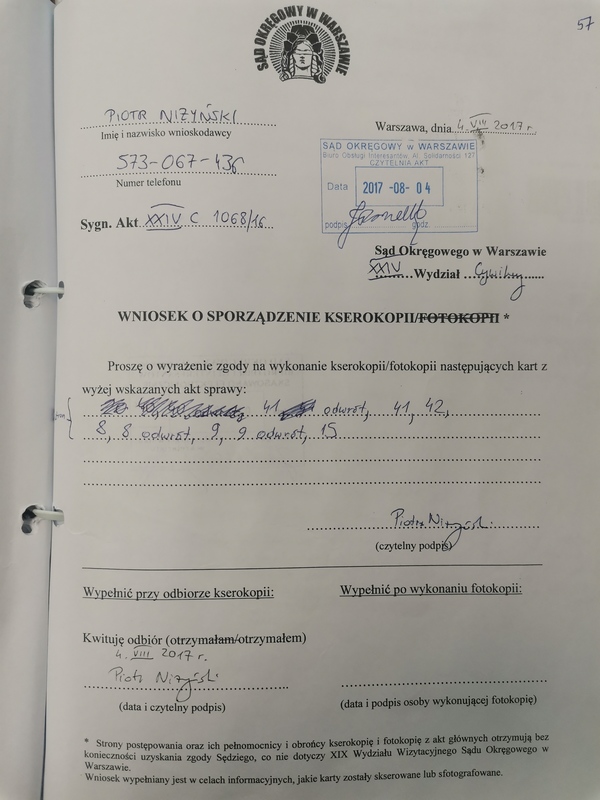 57
SĄD OKRĘGOWY W WARSZAWIE
PIOTR NIŻYŃSKI
Imię i nazwisko wnioskodawcy
Warszawa, dnia 4. VIII 2017 r.
573-067-436
Numer telefonu
SĄD OKRĘGOWY w WARSZAWIE
Biuro Obsługi Interesantów, Al. Solidarności 127
CZYTELNIA AKT
Data 2017 -08- 04
podpis godz.
Sygn. Akt XXIV C 1068/16
Sąd Okręgowego w Warszawie
XXIV Wydział Cywilny
WNIOSEK O SPORZĄDZENIE KSEROKOPII/FOTOKOPII *
Proszę o wyrażenie zgody na wykonanie kserokopii/fotokopii następujących kart z
wyżej wskazanych akt sprawy:
41 odwrót, 41, 42,
8, 8 odwrót, 9, 9 odwrót, 15
Piotr Niżyński
(czytelny podpis)
Wypełnić przy odbiorze kserokopii:
Wypełnić po wykonaniu fotokopii:
Kwituję odbiór (otrzymałam/otrzymałem)
4. VIII 2017 r.
Piotr Niżyński
(data i czytelny podpis)
(data i podpis osoby wykonującej fotokopię)
* Strony postępowania oraz ich pełnomocnicy i obrońcy kserokopię i fotokopię z akt głównych otrzymują bez
konieczności uzyskania zgody Sędziego, co nie dotyczy XIX Wydziału Wizytacyjnego Sądu Okręgowego w
Warszawie.
Wniosek wypełniany jest w celach informacyjnych, jakie karty zostały skserowane lub sfotografowane.